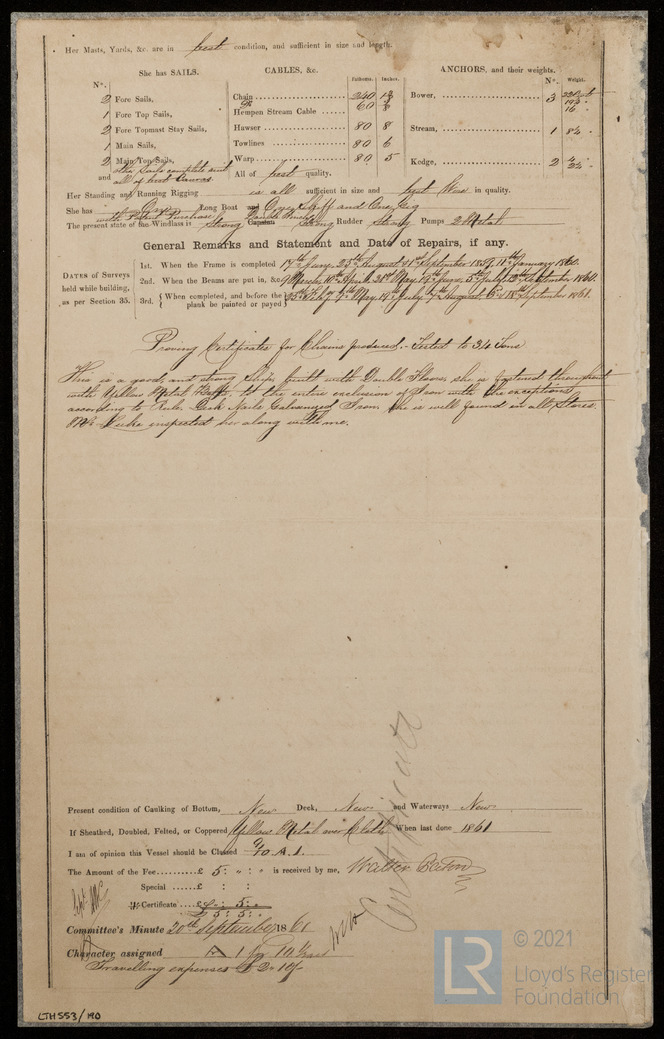 Her Masts, Yards, &c. are in best condition, and sufficient in size and length.
She has SAILS.
CABLES, &c.
ANCHORS, and their weights.
Nº.
Fathoms. Inches.
Nº. Weight.
2 Fore Sails,
1 Fore Top Sails,
2 Fore Topmast Stay Sails,
1 Main Sails,
2 Main Top Sails,
and other Sails complete and
all of good Canvas
Chain 240
Hempen Stream Cable 60
Hawser 80 8
Towlines 80 6
Warp 80 5
All of best quality.
Bower, 3
Stream, 1
Kedge, 2
Her Standing and Running Rigging is all sufficient in size and best Wire in quality.
She has One Long Boat and One Skiff and One Gig
with Patent Purchase
The present state of the Windlass is strong Capstan strong Rudder strong Pumps 2 Metal
General Remarks and Statement and Date of Repairs, if any.
DATES of Surveys
held while building,
as per Section 35.
1st. When the Frame is completed 17th June, 25th August, 21st September 1859, 11th January 1860.
2nd. When the Beams are put in, &c. 9 March, 10th April, 31st May, 19th June, 5th July, 12th September 1860.
3rd. { When completed, and before the plank be painted or payed } 25th Feby, 7th May, 19 July, 7th August, 6 & 18th September 1861.
Proving Certificates for Chains produced.- Tested to 34 Tons
This is a good and strong Ship, built with Double Floors, she is fastened throughout
with Yellow Metal Bolts, to the entire exclusion of Iron with the exceptions
according to Rule. Deck Nails Galvanized Iron, she is well found in all Stores.
inspected her along with me.
Present condition of Caulking of Bottom, New Deck, New and Waterways New
If Sheathed, Doubled, Felted, or Coppered Yellow Metal over When last done 1861
I am of opinion this Vessel should be Classed 10 A.1.
The Amount of the Fee......£ 5 : " : " is received by me, Walter
Special ......£ : :
Certificate ....£ " : 5 : "
£ 5 : 5 : "
Sept
Committee's Minute 20th September 1861
Character assigned A 1 for 10 Years
Travelling expenses £ 2 " 10/-
Certificate
LTH553/190
LR
© 2021
Lloyd's Register
Foundation